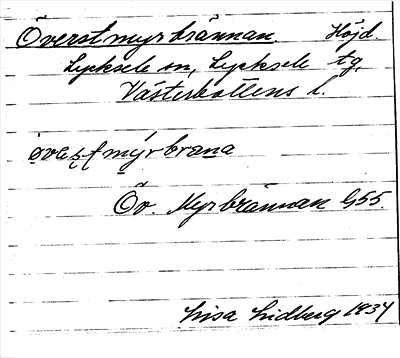 Överstmyrbrännan. Höjd.
Lycksele sn, Lycksele tg,
Västerbottens l.
mýrbrana
Öv. Myrbrännan G55.
Lisa Lidberg 1934